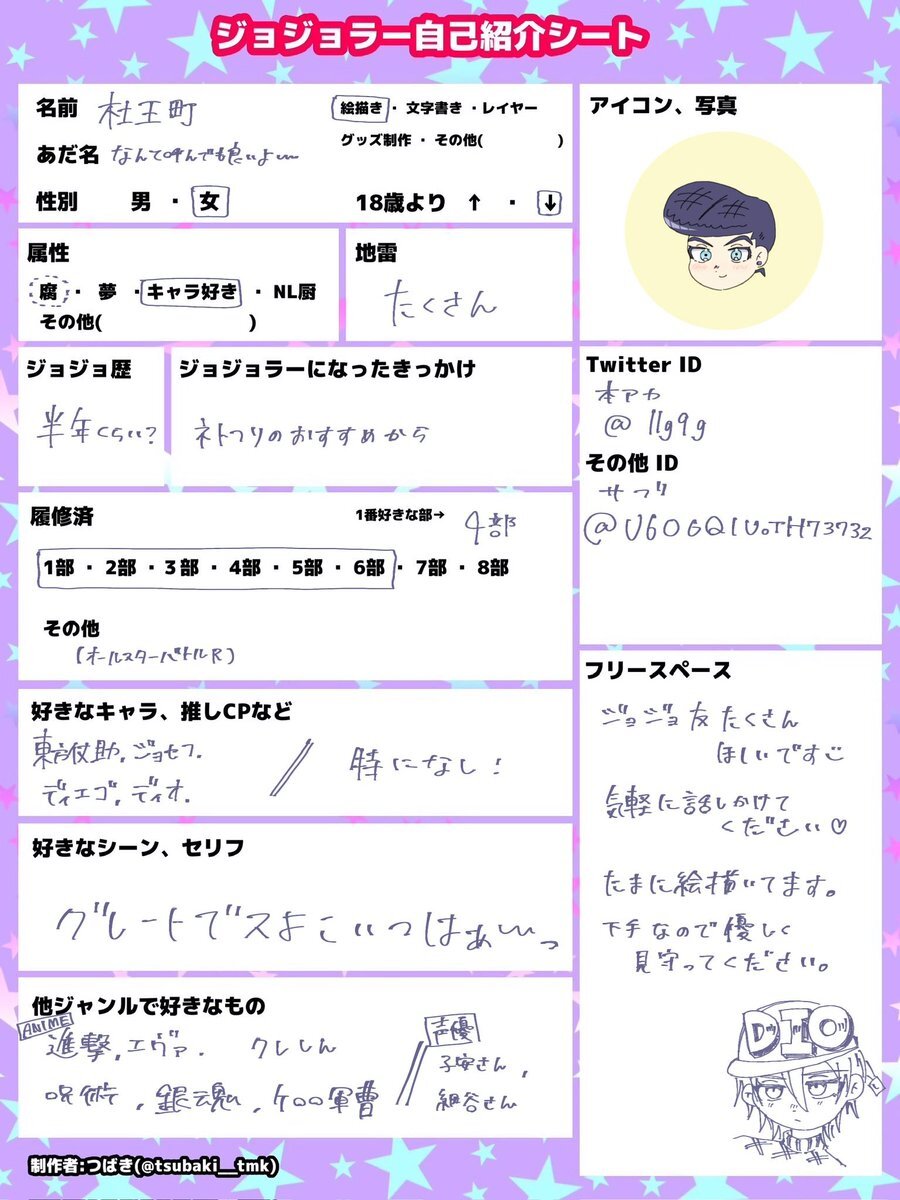 ジョジョラー自己紹介シート
名前 杜王町
絵描き・文字書き・レイヤー
グッズ制作・その他( )
あだ名 なんて呼んでも良いよ〜
性別 男・女
18歳より ↑・↓
アイコン、写真
属性
腐・夢・キャラ好き・NL厨
その他( )
地雷
たくさん
ジョジョ歴
半年くらい?
ジョジョラーになったきっかけ
ネトフリのおすすめから
Twitter ID
本アカ
@11g9g
その他 ID
サブ
履修済
1番好きな部→ 4部
1部・2部・3部・4部・5部・6部・7部・8部
その他
(オールスターバトルR)
好きなキャラ、推しCPなど
東方仗助, ジョセフ.
ディエゴ, ディオ.
特になし!
好きなシーン、セリフ
グレートでスよこいつはぁ〜っ
他ジャンルで好きなもの
ANIME
進撃, エヴァ. クレしん
呪術, 銀魂, ケロロ軍曹
声優
子安さん,
細谷さん
フリースペース
ジョジョ友たくさん
ほしいです
気軽に話しかけて
ください♡
たまに絵描いてます。
下手なので優しく
見守ってください。
DIO
制作者:つばき(@tsubaki__tmk)